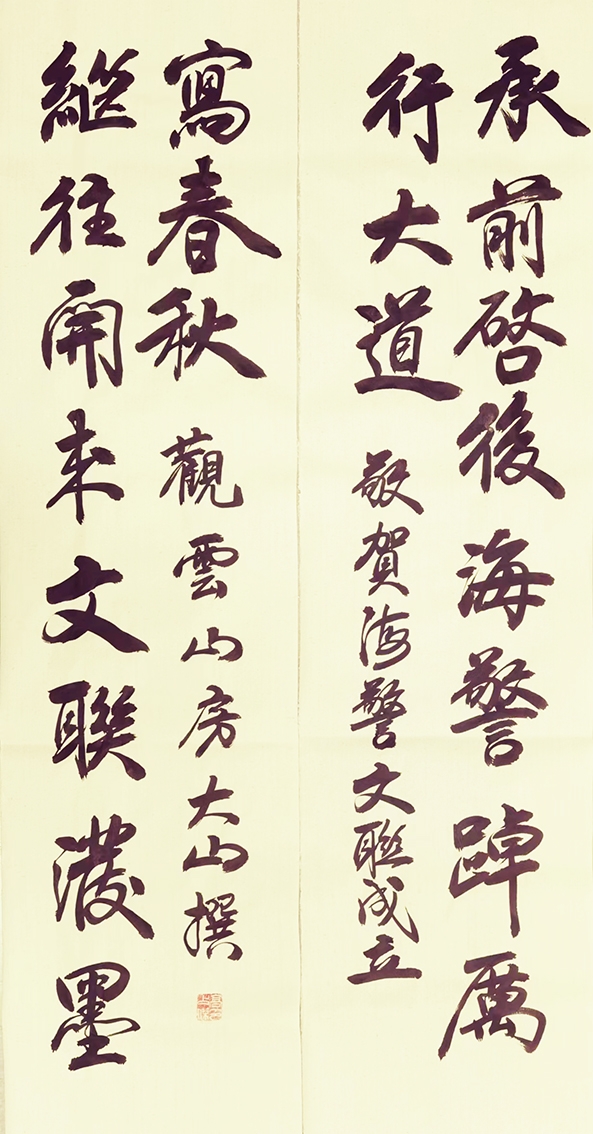 承前啓後海警踔厲
行大道 敬賀海警文聯成立
繼往開来文聯潑墨
寫春秋 觀雲山房大山撰